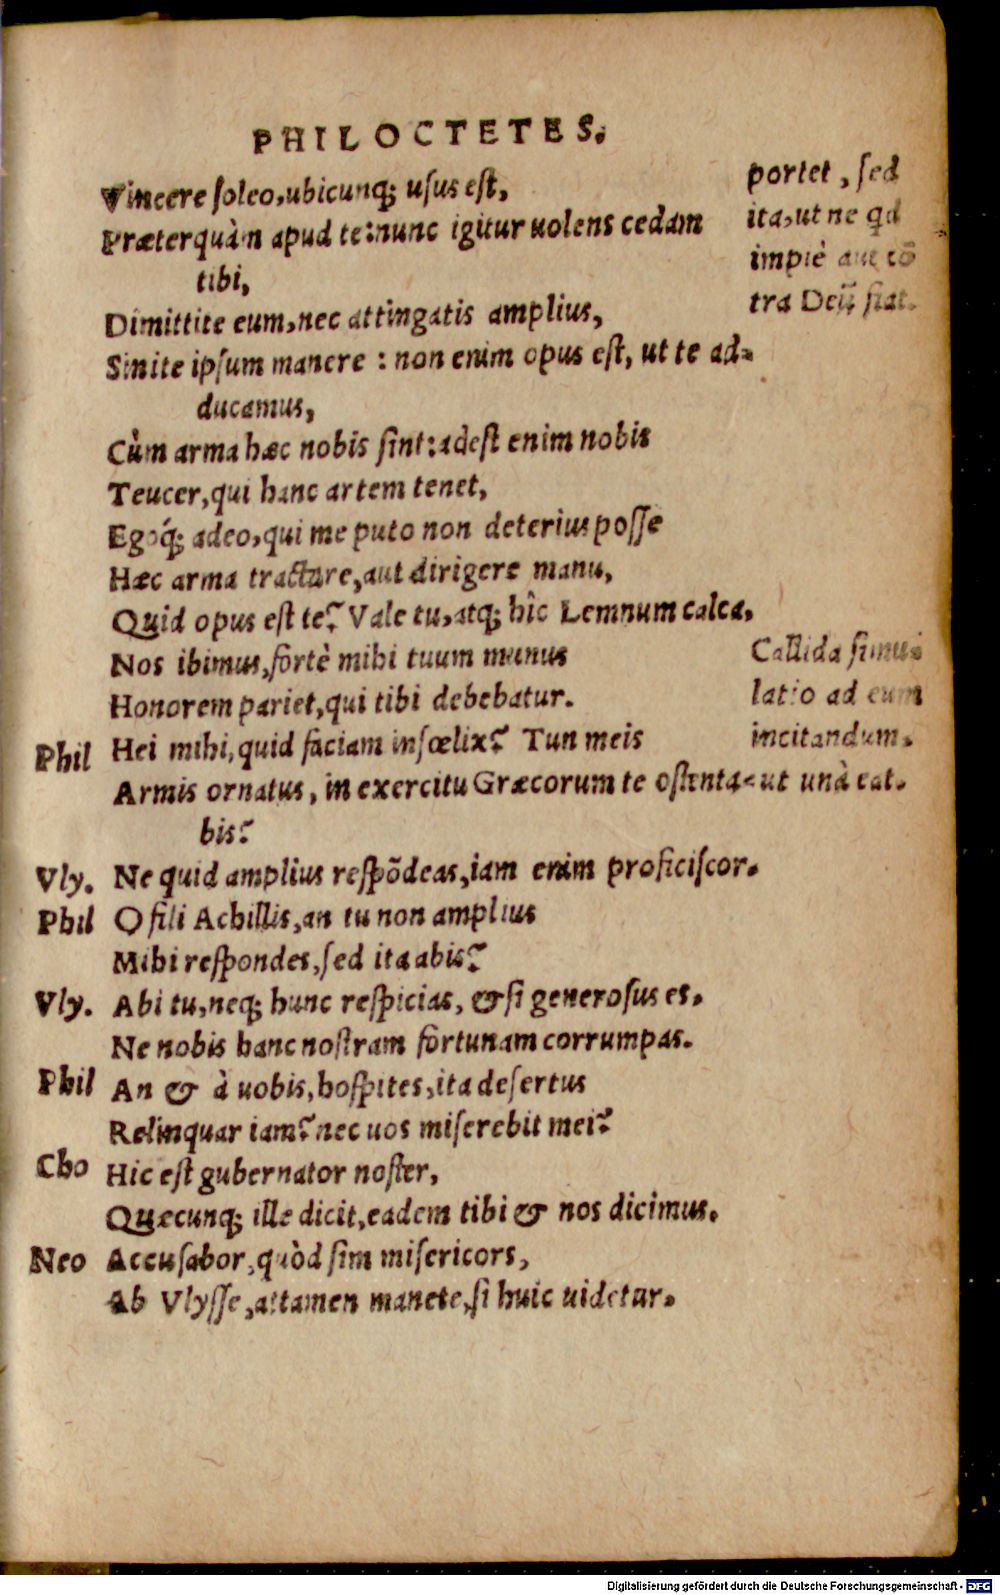 PHILOCTETES.
Vincere soleo, ubicunq; usus est,
Præterquàm apud te: nunc igitur uolens cedam
tibi,
Dimittite eum, nec attingatis amplius,
Sinite ipsum manere : non enim opus est, ut te ad-
ducamus,
Cùm arma hæc nobis sint: adest enim nobis
Teucer, qui hanc artem tenet,
Egoq́; adeo, qui me puto non deterius posse
Hæc arma tractare, aut dirigere manu,
Quid opus est te? Vale tu, atq; hîc Lemnum calca,
Nos ibimus, fortè mihi tuum munus
Honorem pariet, qui tibi debebatur.
Phil Hei mihi, quid faciam infœlix? Tun meis
Armis ornatus, in exercitu Græcorum te ostenta-
bis?
Vly. Ne quid amplius respõdeas, iam enim proficiscor.
Phil O fili Achillis, an tu non amplius
Mihi respondes, sed ita abis?
Vly. Abi tu, neq; hunc respicias, & si generosus es.
Ne nobis hanc nostram fortunam corrumpas.
Phil An & à uobis, hospites, ita desertus
Relinquar iam? nec uos miserebit mei?
Cho Hic est gubernator noster,
Quæcunq; ille dicit, eadem tibi & nos dicimus.
Neo Accusabor, quòd sim misericors,
Ab Vlysse, attamen manete, si huic uidetur.
portet, sed
ita, ut ne qd
impiè aut cõ
tra Deũ fiat.
Callida simu-
latio ad eum
incitandum,
ut unà eat.
Digitalisierung gefördert durch die Deutsche Forschungsgemeinschaft - DFG